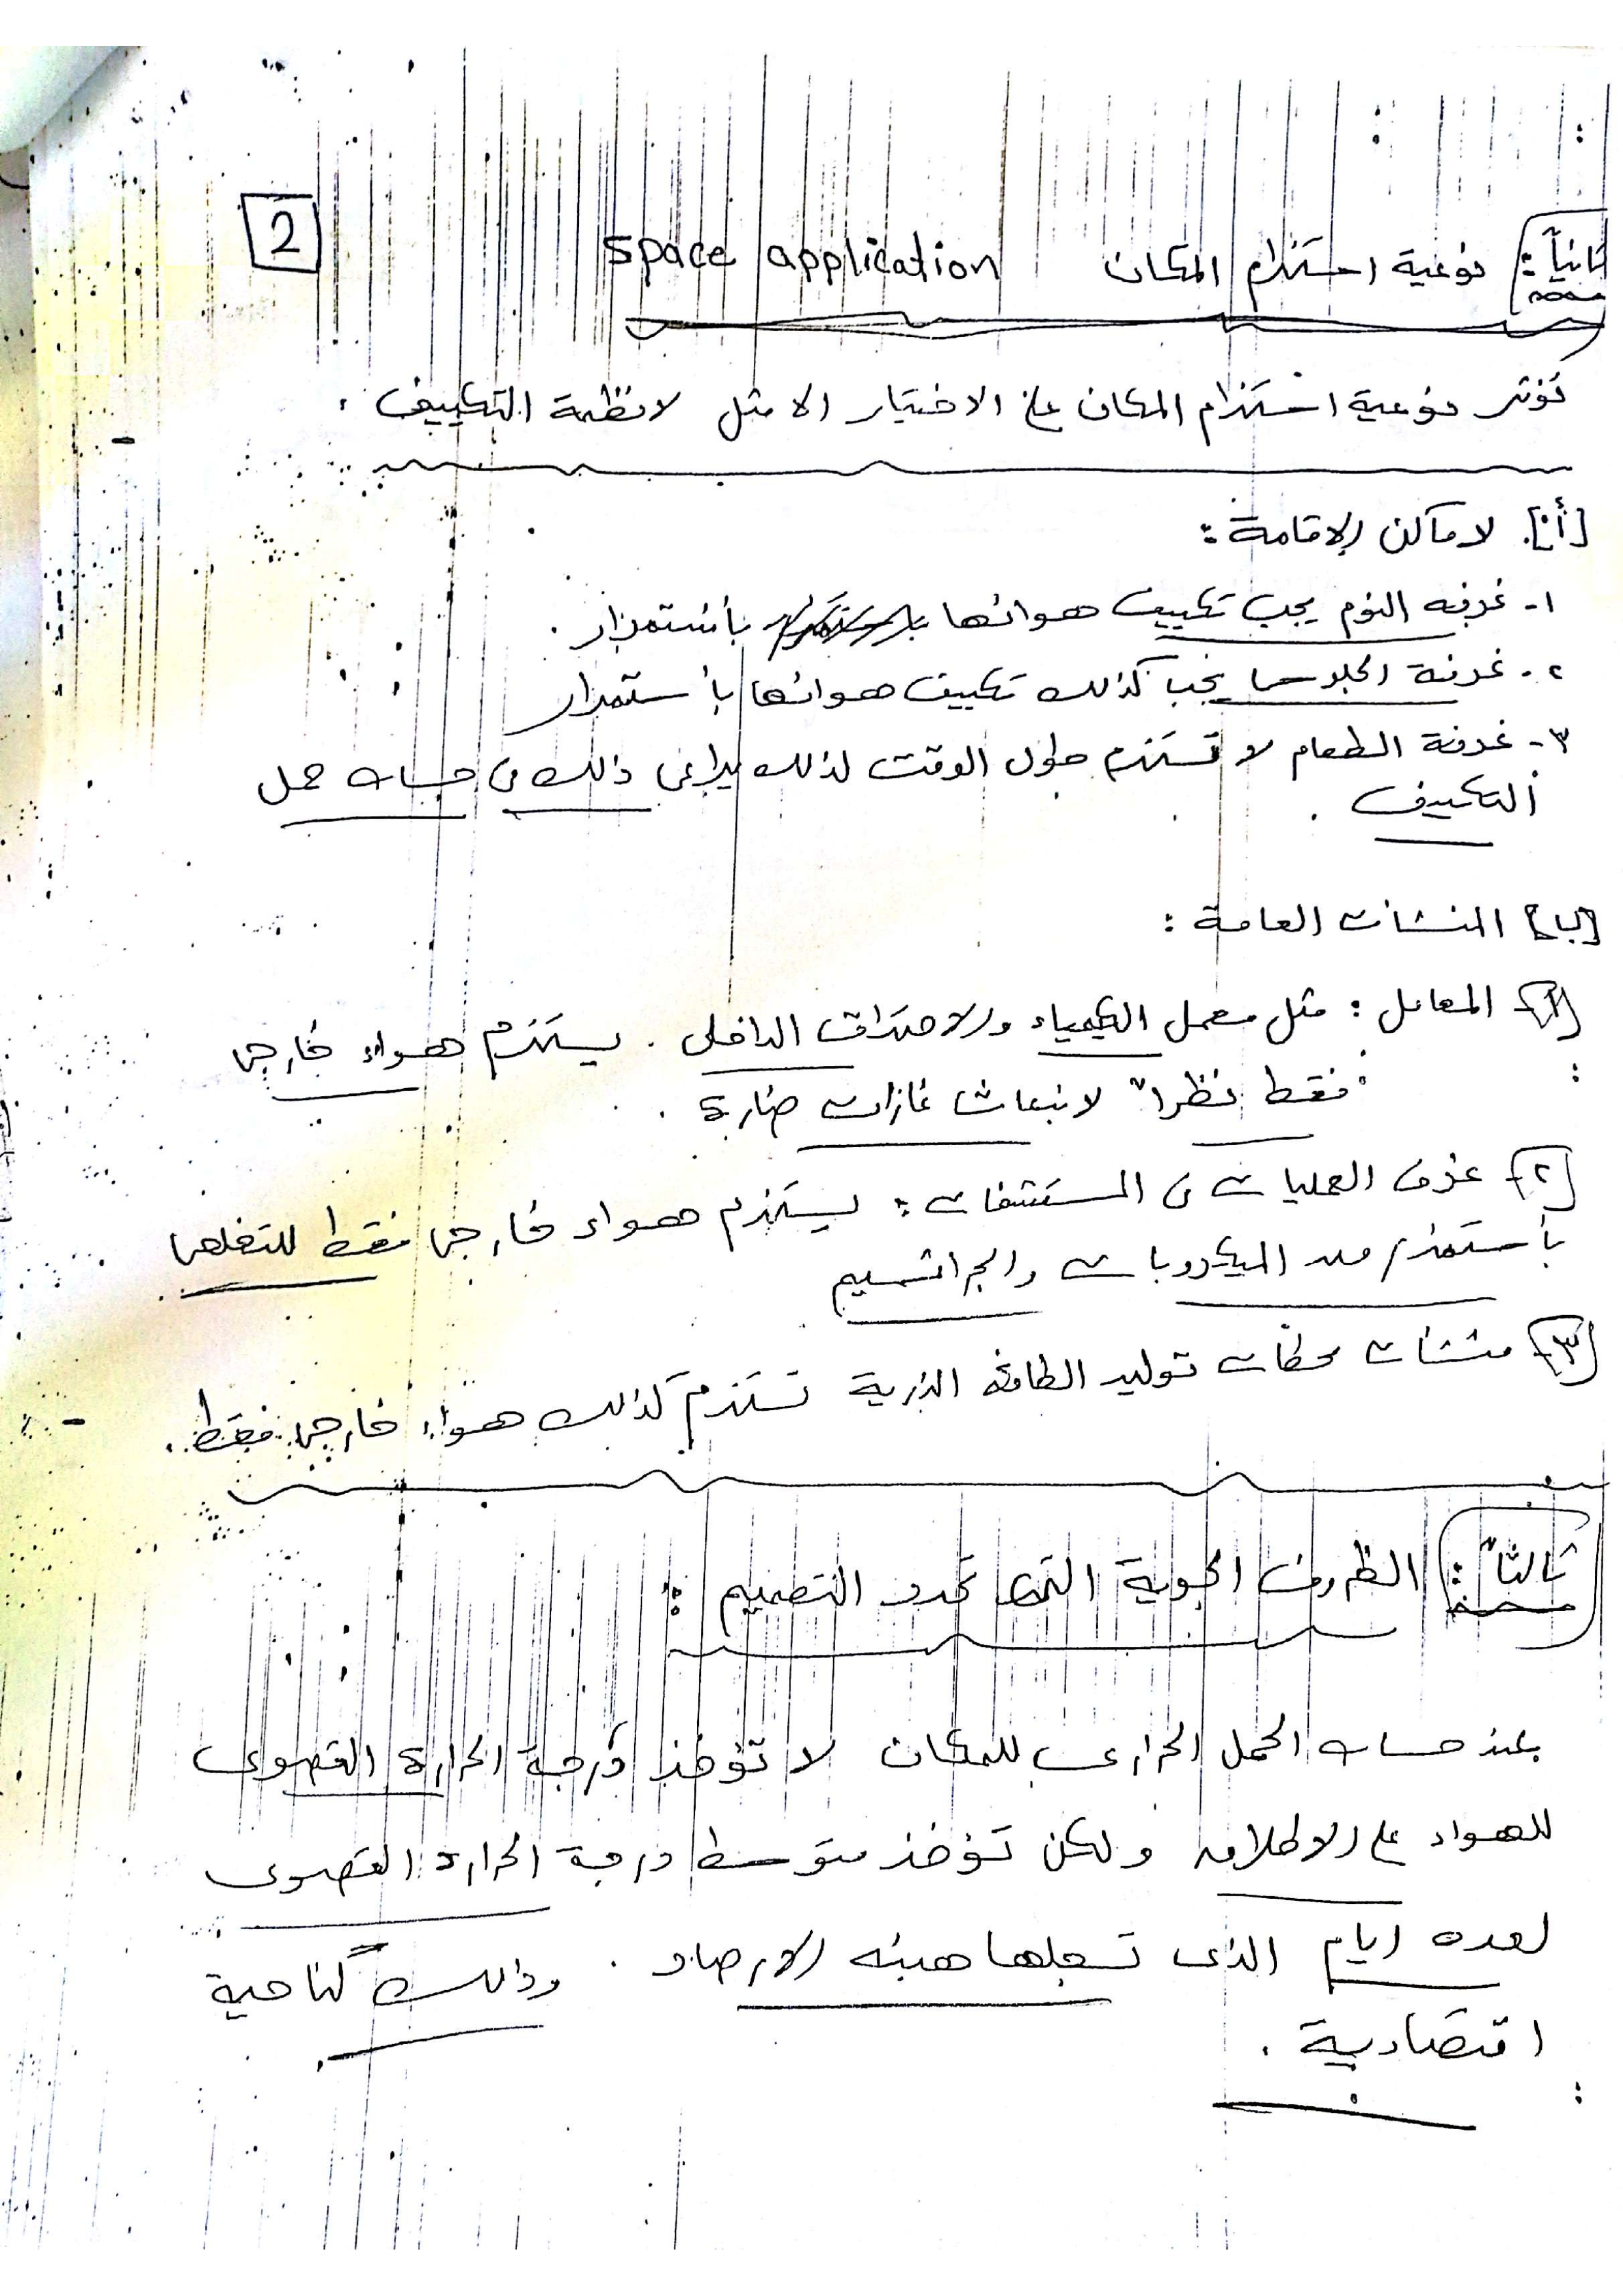 2
ثانياً: نوعية استخدام المكان space application
تؤثر نوعية استخدام المكان على الاختيار الامثل لانظمة التكييف .
[أ] لاماكن الاقامة :
١- غرفه النوم يجب تكييف هوائها بأستمرار .
٢- غرفة الجلوس يجب كذلك تكييف هوائها بأستمرار
٣- غرفة الطعام لا تستخدم طول الوقت لذلك يراعى ذلك فى حساب حمل
التكييف .
[ب] المنشات العامة :
[١] المعامل : مثل معمل الكيمياء والاحتراق الداخلى . يستخدم هواء خارجى
فقط نظراً لانبعاث غازات ضارة .
[٢] غرف العمليات فى المستشفات : يستخدم هواء خارجى فقط للتخلص
بأستمرار من الميكروبات والجراثيم
[٣] منشات محطات توليد الطاقه الذرية تستخدم كذلك هواء خارجى فقط .
ثالثاً : الظروف الجوية التى تحدد التصميم :
عند حساب الحمل الحرارى للمكان لا تؤخذ درجة الحرارة القصوى
للهواء على الاطلاق ولكن تؤخذ متوسط درجة الحرارة القصوى
لعده ايام الذى تسجلها هيئه الارصاد . وذلك كناحية
اقتصادية .